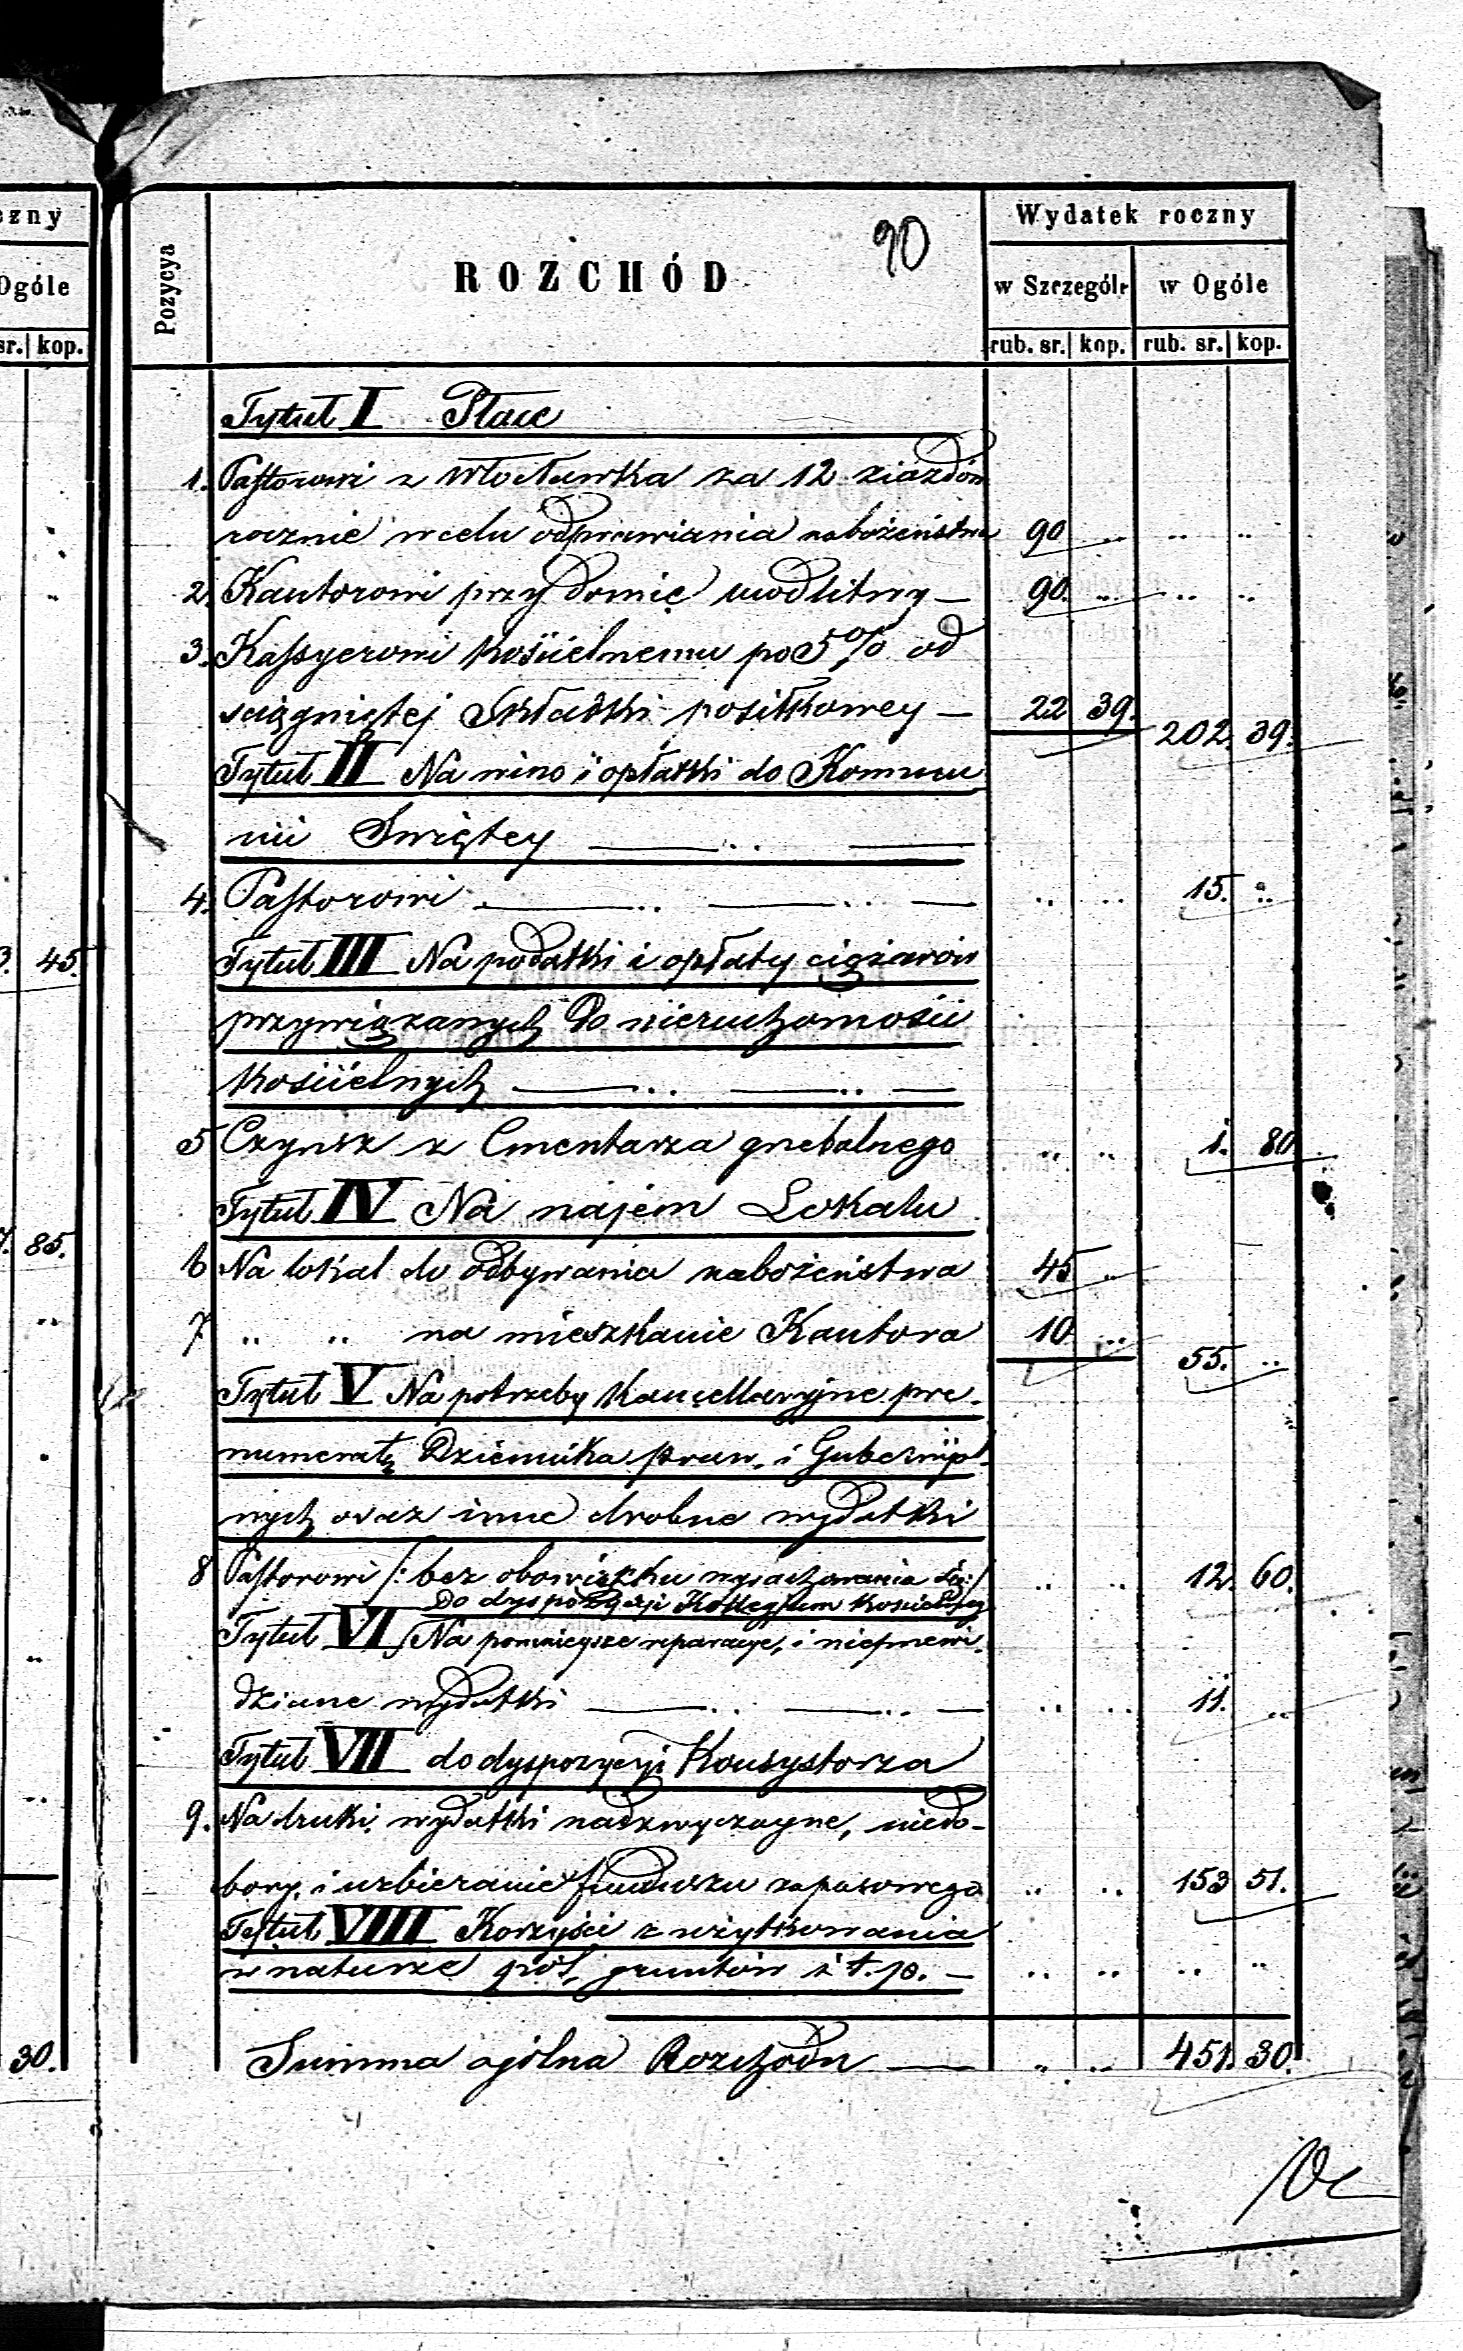 czny
Ogóle
sr. kop.
3. 45.
7. 85.
30.
90
Pozycya
ROZCHÓD
Wydatek roczny
w Szczególe
w Ogóle
rub. sr. kop. rub. sr. kop.
Tytuł I Płace
1. Pastorowi z Włocławka za 12 ziazdów
rocznie w celu odprawiania nabożeństwa 90 .. .. ..
2. Kantorowi przy domie modlitwy — 90. .. .. ..
3. Kassyerowi kościelnemu po 5% od
sciągniętej składki posiłkowey — 22 39. 202. 39.
Tytuł II Na wino i opłatki do Kommu
nii Swiętey — .. —
4. Pastorowi — .. — .. — .. .. 15. ..
Tytuł III Na podatki i opłaty ciężarów
przywiązanych do nieruchomości
kościelnych — .. — .. —
5 Czynsz z Cmentarza grzebalnego .. .. 1. 80
Tytuł IV Na najem Lokalu
6 Na lokal do odbywania nabożeństwa 45 ..
7 .. .. na mieszkanie Kantora 10 .. 55. ..
Tytuł V Na potrzeby kancellaryjne pre-
numeratę Dziennika praw, i Gubernijal-
nych oraz inne drobne wydatki
8 Pastorowi /: bez obowiązku wyrachowania się :/ .. .. 12. 60.
Do dyspozycji Kollegium kościelnego
Tytuł VI Na pomniejsze reparacye, i nieprzewi-
dziane wydatki — .. — .. — .. .. 11. ..
Tytuł VII do dyspozycji Konsystorza
9. Na druki, wydatki nadzwyczayne, niedo-
bory, i uzbieranie funduszu zapasowego .. .. 153 51.
Tytuł VIII Korzyści z użytkowania
w naturze pól, gruntów i t. p. — .. .. .. ..
Summa ogólna Rozchodu — .. .. 451. 30.